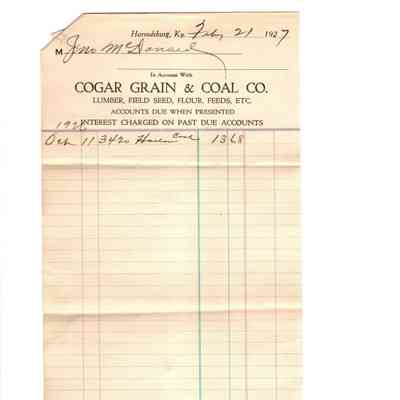 Harrodsburg, Ky. Feb, 21 1927
M Jno McDonald
In Account With
COGAR GRAIN & COAL CO.
LUMBER, FIELD SEED, FLOUR, FEEDS, ETC.
ACCOUNTS DUE WHEN PRESENTED
INTEREST CHARGED ON PAST DUE ACCOUNTS
1926
Oct 11 3420 Coal 13 68